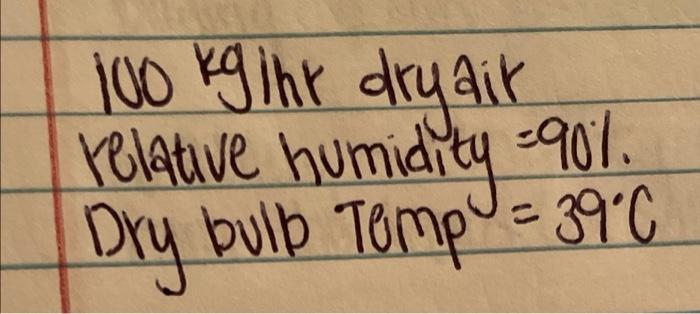 100 kg/hr dry air
relative humidity = 90%.
Dry bulb Temp = 39°C